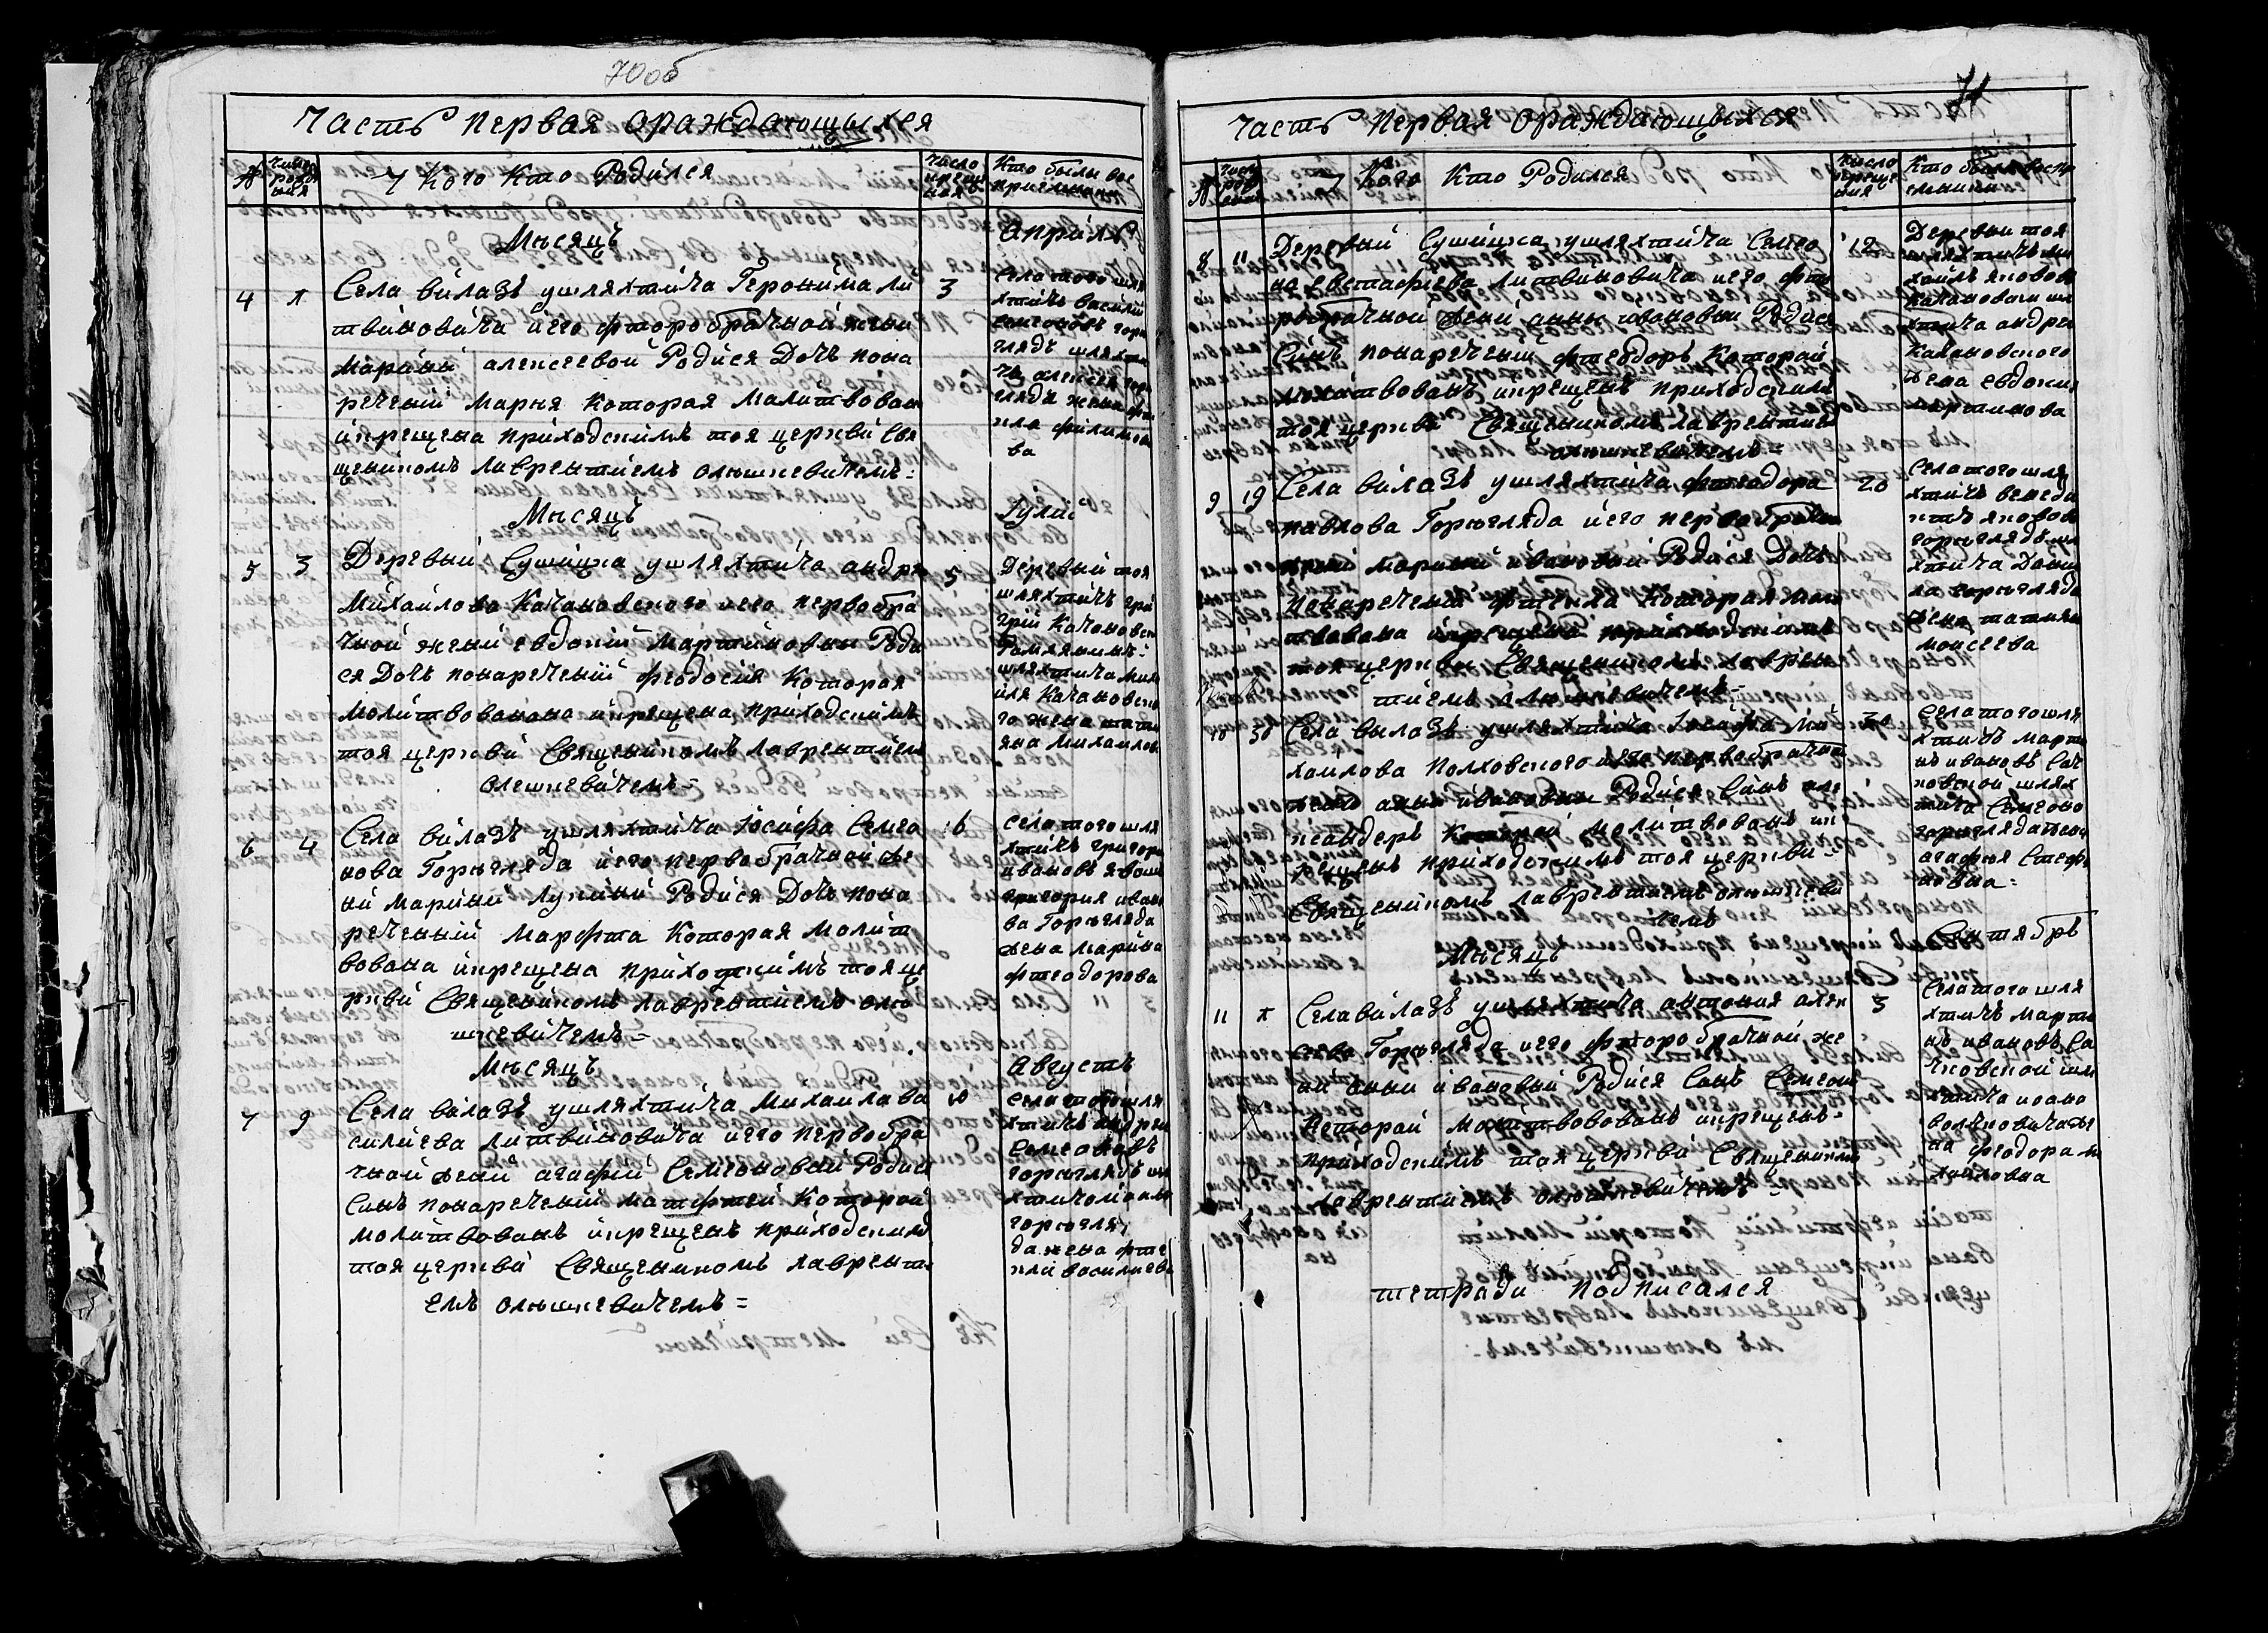 70об
Часть первая ораждающыхся
№
Число рожде ния
У Кого Кто Родился
Число креще ния
Кто были вос приемники
Мѣсяцъ
Апрѣль
4
1
Села Вилазъ ушляхтича Геронима Ли
твиновича иего фторобрачной жени
Марйни алексеевой Родися Дочъ пона
речений Марня Которая Малитвован
икрещена приходскимъ тоя церкви Свя
щеникомъ Лаврентиемъ олюшкевичемъ:
3
Села того шля
хтичъ василий
Семеоновъ горо
глядъ шляхти
ча алексея горо
гляда жена фте
кла филимоно
ва
Мѣсяцъ
Іулий
5
3
Деревый Сушицка ушляхтича андрея
Михаилова Качановского иего первобра
чной жений евдокий Мартиновы Роди
ся Дочъ понаречений феодосия Которая
молитвованана икрещена приходскимъ
тоя церкви Священиком Лаврентием
олешкевичемъ=
5
Деревый тоя
шляхтичъ гри
грий Качановски
шляхтича Миха
йла Качановско
го жена татия
яна Михаилов
6
4
Села Вилазъ ушляхтича Іосифа Семео
нова Горогляда иего первобрачной же
ни Марйни Лукини Родися Дочъ пона
речений Марфта Которая Молит
вована икрещена приходскимъ тояце
ркви Священикомъ Лаврентиемъ олю
шкевичемъ=
6
Села тогошля
хтичъ григори
ивановъ
григория ивано
ва Горогляда
жена Марйна
фтеодорова
Мѣсяцъ
Августъ
7
9
Села Вилазъ ушляхтича Михаила ва
силиева Литвиновича иего первобра
чной жений агафий Семеоновой Родися
Синъ понаречений матфтей Которой
молитвованъ икрещенъ приходским
тоя церкви Священикомъ Лаврентi
емъ олюшкевичемъ=
10
Села тогошля
хтичъ андреи
Семеоновъ
горогляд шля
горогля
да жена фте
кла василиева
71
Часть Первая Ораждающыхся
№
Число рож дения
У Кого Кто Родился
Число креще ния
Кто были воспр емники
8
11
Деревый Сушицка ушляхтича Семео
на евстафиева Литвиновича иего фто
робрачной жени анны ивановы Родися
Синъ понаречены фтеодоръ Которой
молитвованъ икрещенъ приходским
тоя церкви Священикомъ лаврентием
олюшкевичемъ=
12
Деревы тоя
шляхтичъ ми
хаилъ яковов
Качановски шля
хтича андреи
Качановского
жена евдокия
мартинова
9
19
Села Вилазъ ушляхтича фтеодора
павлова Горогляда иего первобрачно
жений марйни ивановой Родися Дочъ
понаречений фтекла Которая моли
твована икрещена приходскимъ
тоя церкви Священикомъ лаврен
тиемъ олюшкевичемъ=
20
Села того шля
хтичъ венеди
ктъ яковов
горогляд шля
хтича Дани
ла горогляда
жена татияна
моисеева
10
30
Села вылазъ ушляхтича Іосифа Ми
хаилова Полховского иего первобрачно
жени анны ивановы Родися Синъ але
ксандеръ Которой молитвованъ ик
рещенъ приходскимъ тоя церкви=
Священикомъ лаврентиемъ олюшкеви
чемъ
Села тогошля
хтичъ марти
нъ ивановъ Сач
ковской шлях
тича Семеона
горогляда жена
агафия Стефа
новна=
Мѣсяцъ
Сентябрь
11
1
Села вилазъ ушляхтича антония алек
сеева Горогляда иего фторобрачной же
ни анни ивановый Родися Синъ Семеон
Которой молитвованъ икрещенъ=
приходскимъ тоя церкви Священиком
лаврентиемъ олюшкевичемъ
3
Села того шля
хтичъ марти
нъ ивановъ Са
чковской шля
хтича ивана
волковича же
на феодора ми
хайловна
тетради подписался